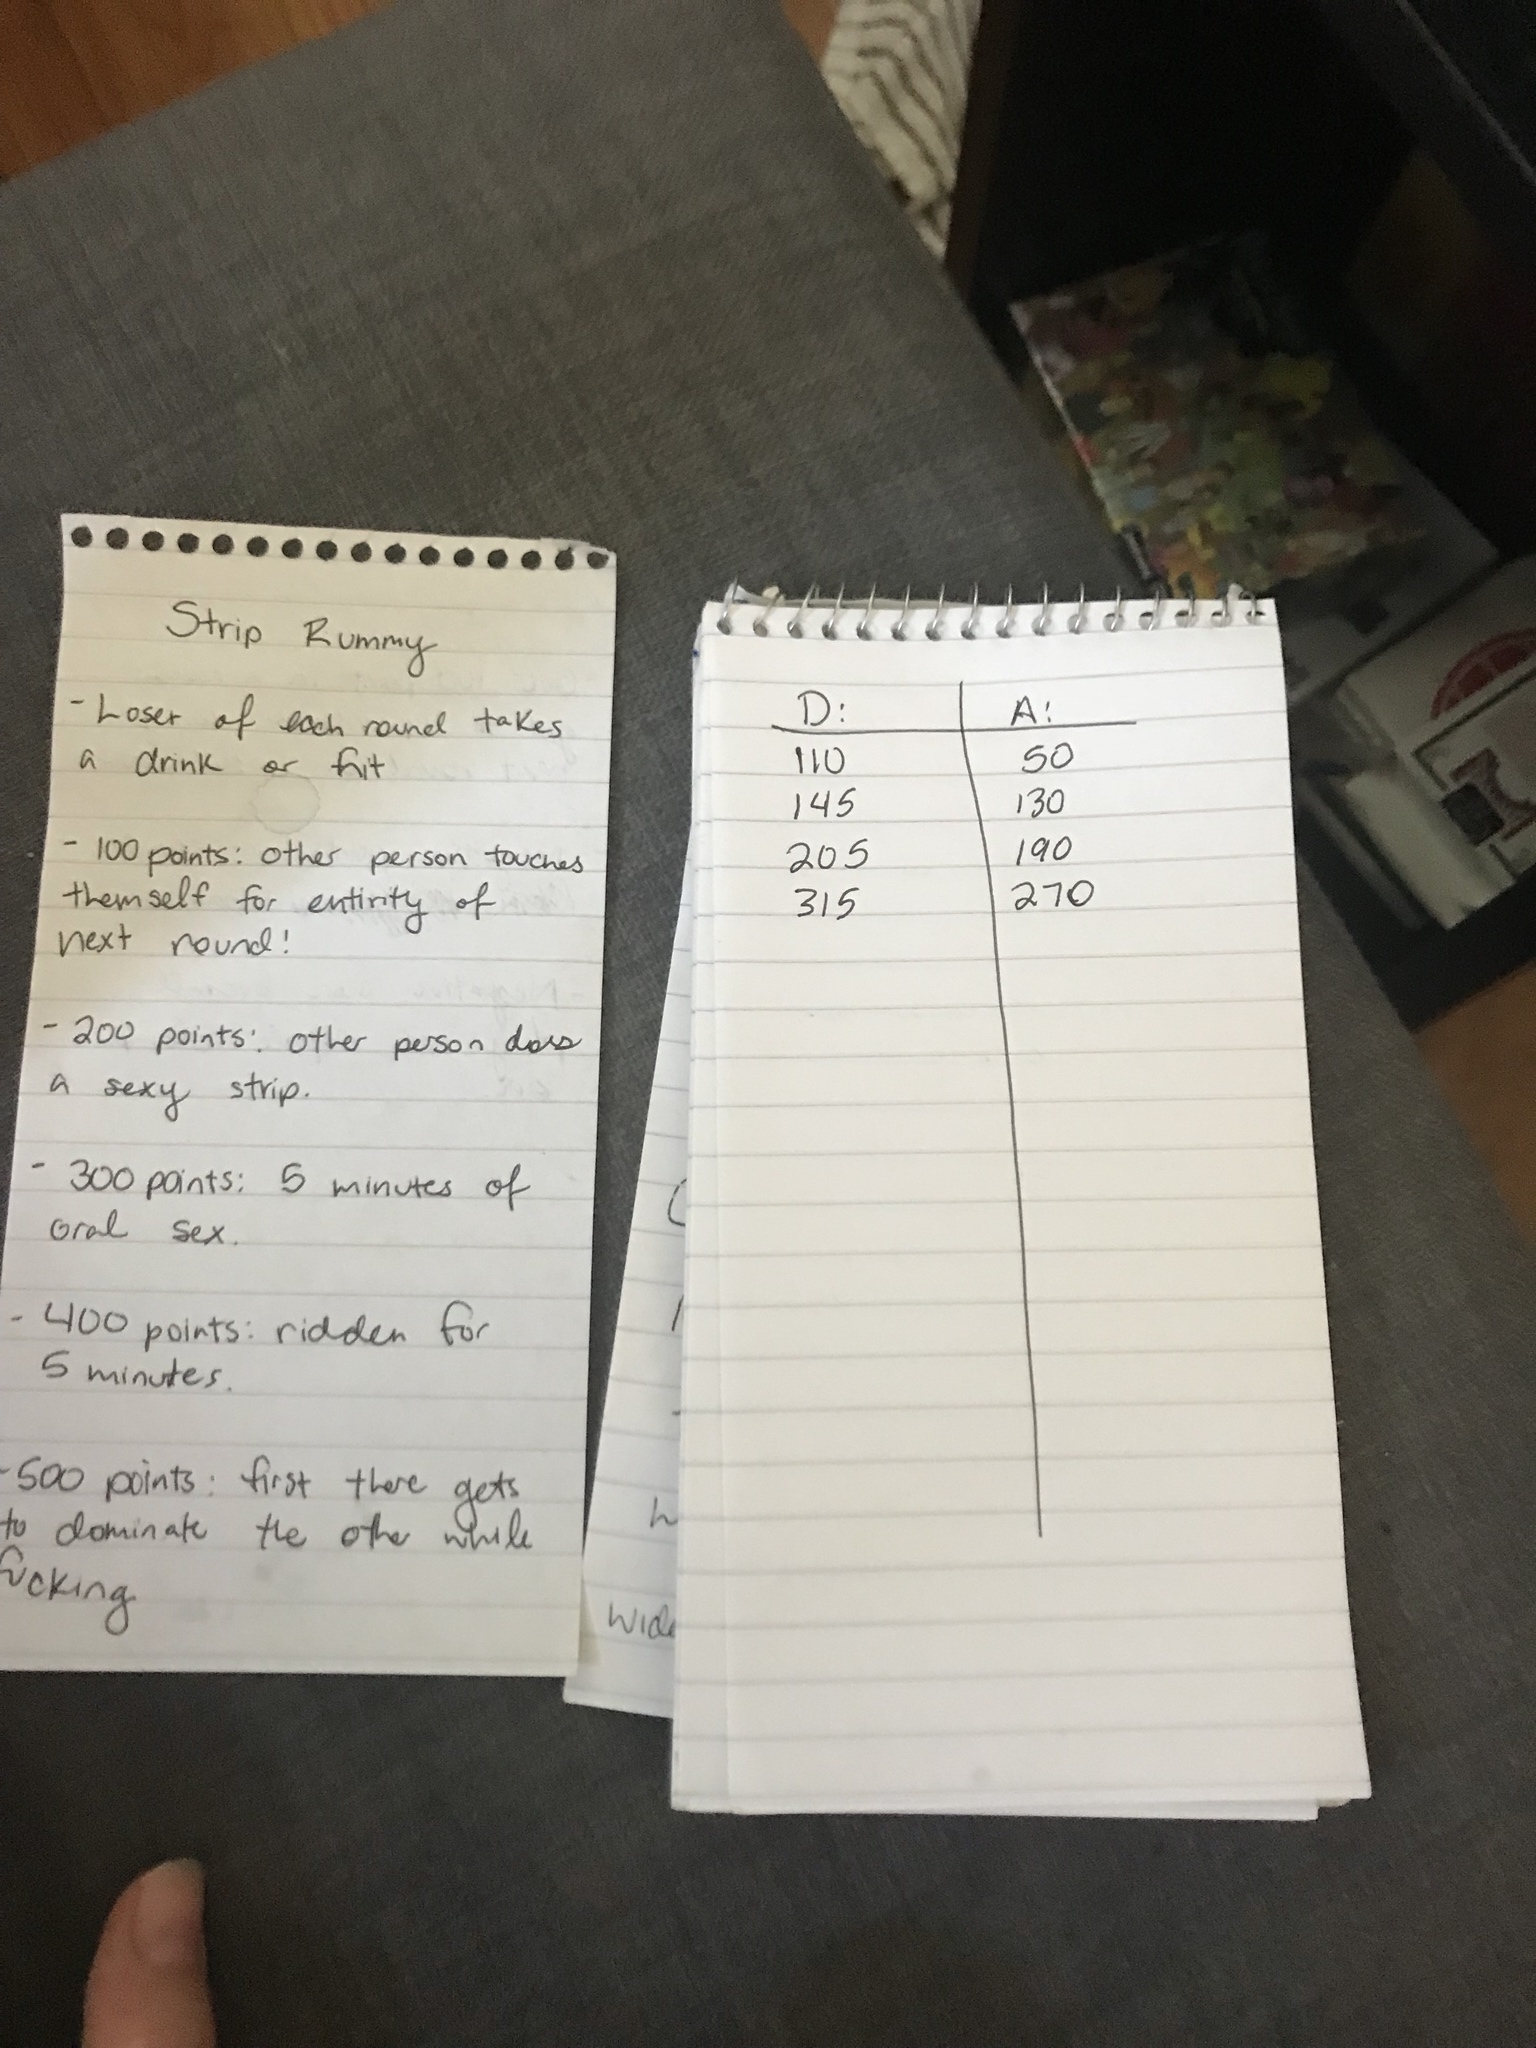 Strip Rummy
- Loser of each round takes
a drink or hit
- 100 points: other person touches
themself for entirity of
next round!
- 200 points: other person does
a sexy strip.
- 300 points: 5 minutes of
oral sex.
- 400 points: ridden for
5 minutes.
- 500 points: first there gets
to dominate the other while
fucking
D: A:
110 50
145 130
205 190
315 270